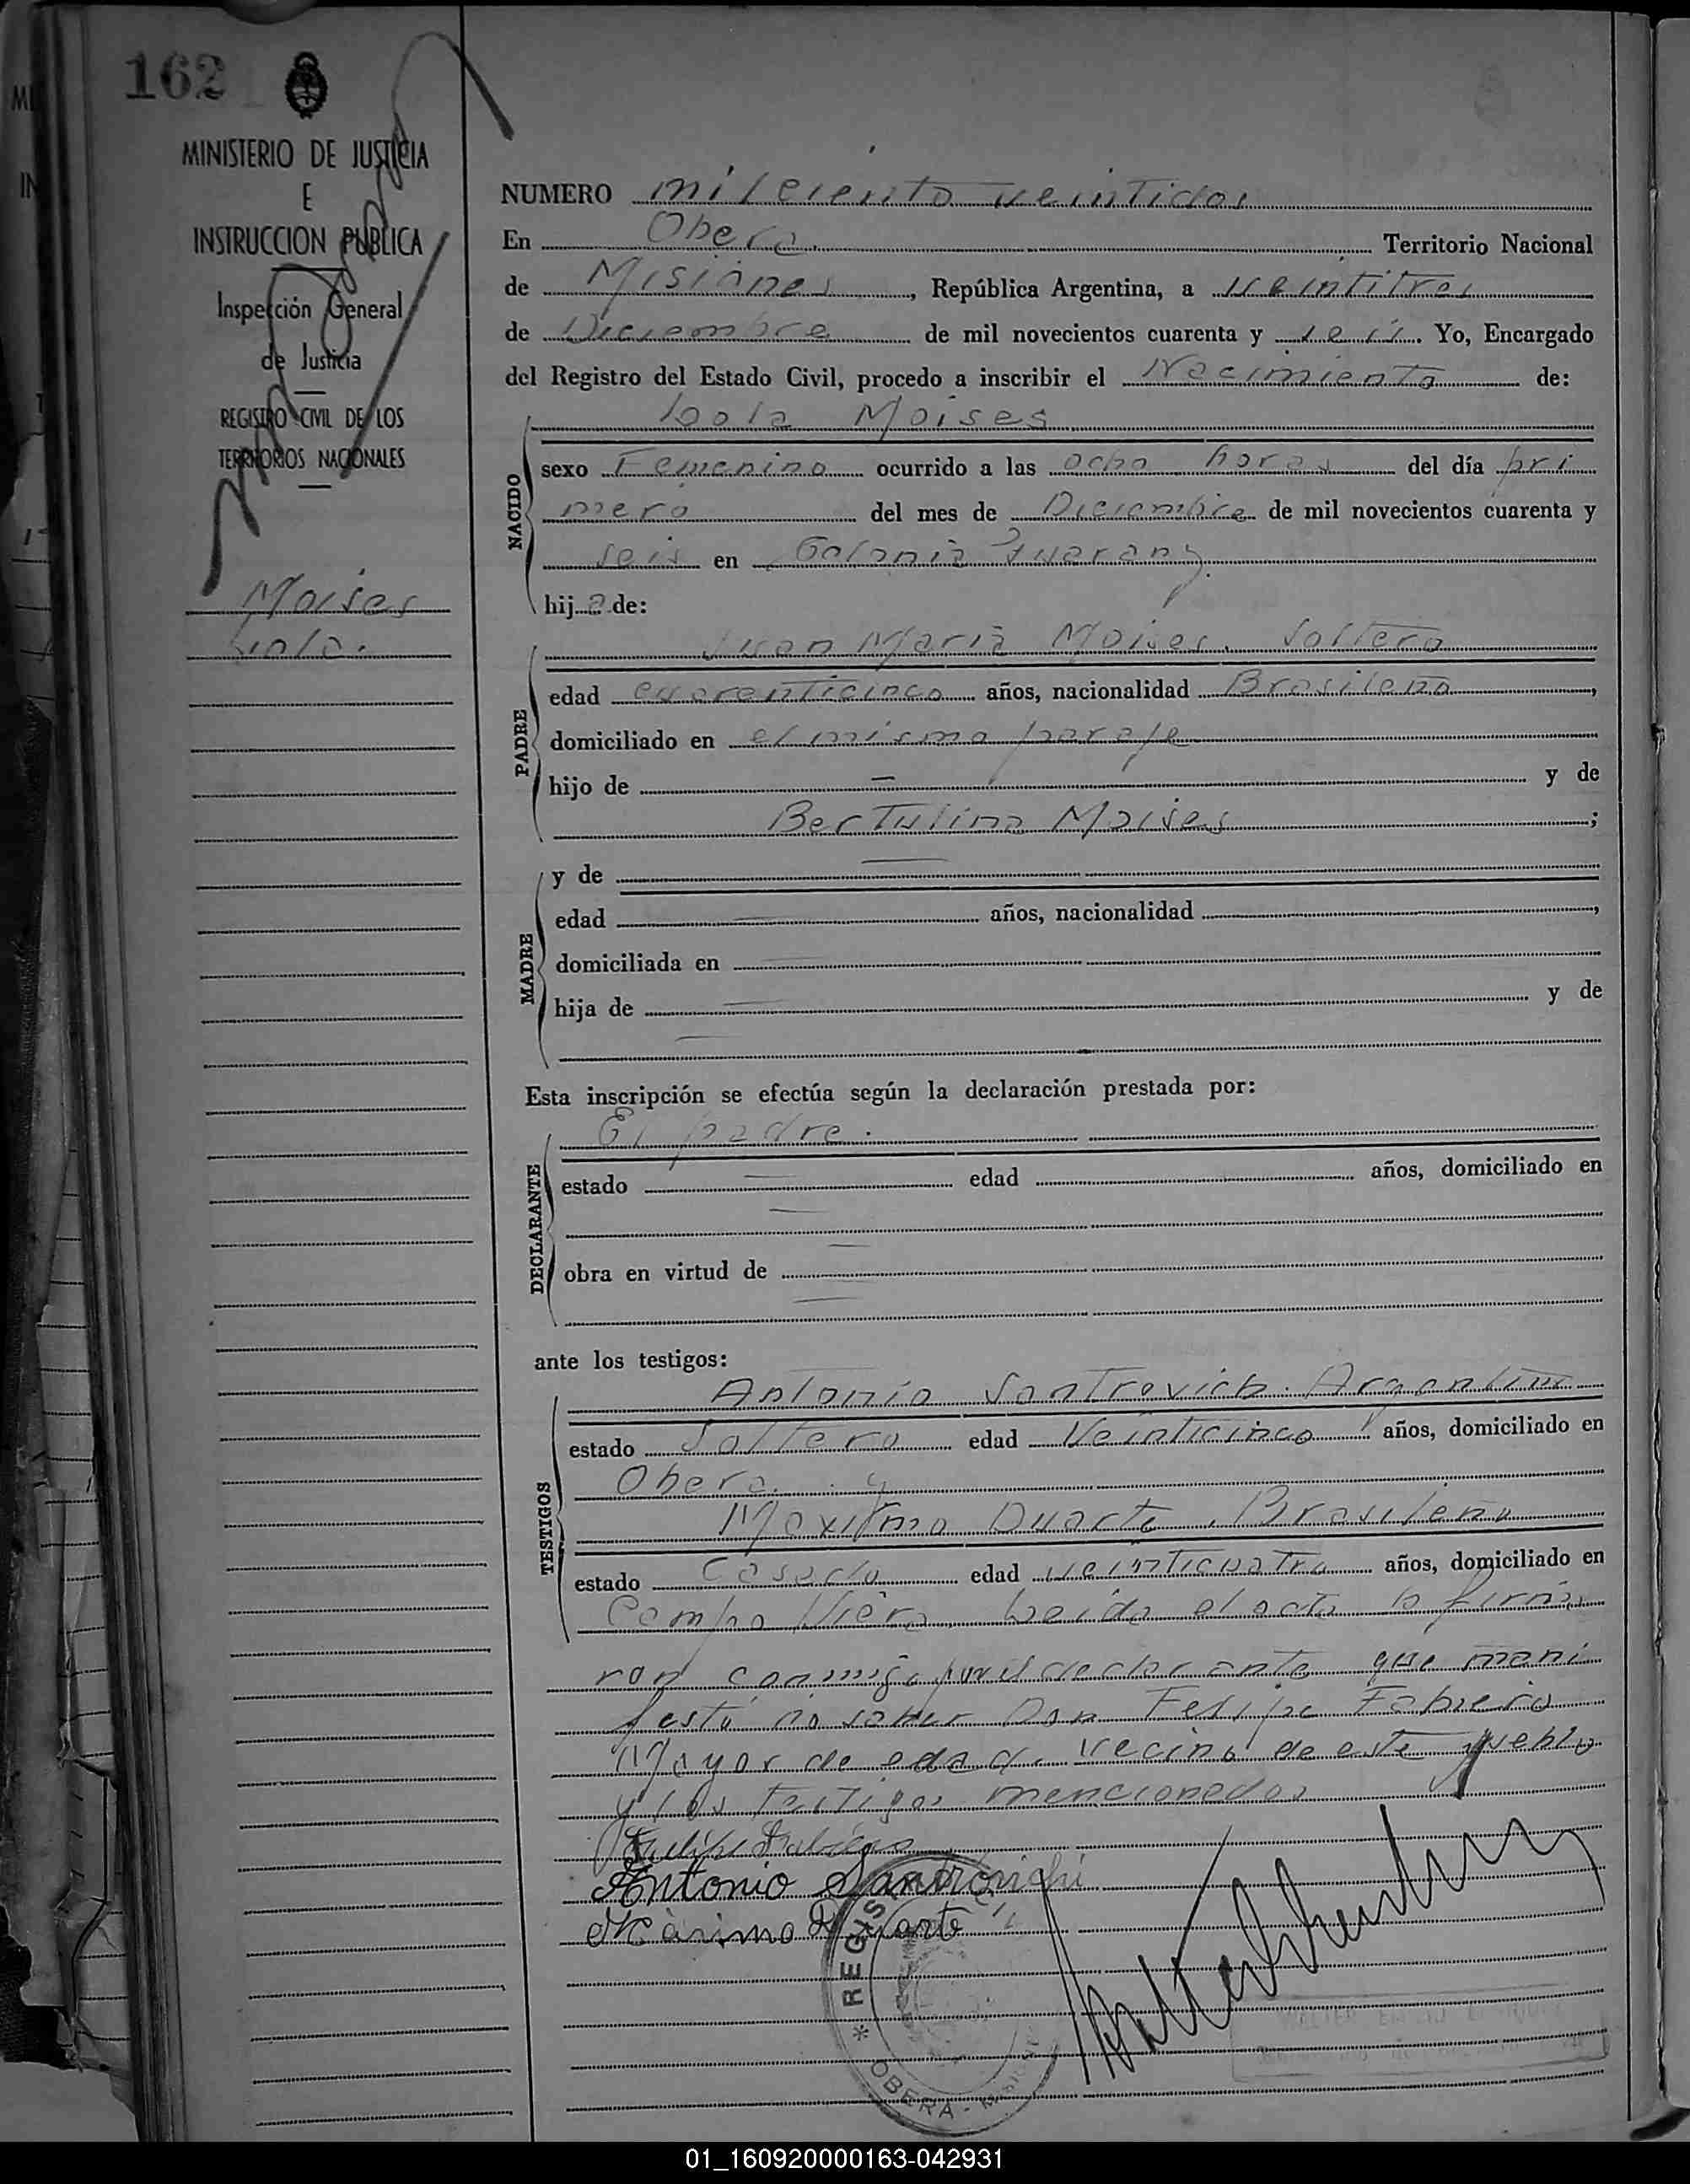 162
MINISTERIO DE JUSTICIA
E
INSTRUCCION PUBLICA
Inspección General
de Justicia
REGISTRO CIVIL DE LOS
TERRITORIOS NACIONALES
Moises
Lola.
NUMERO mil ciento veintidos
En Obera. Territorio Nacional
de Misiones, República Argentina, a veintitres
de Diciembre de mil novecientos cuarenta y seis. Yo, Encargado
del Registro del Estado Civil, procedo a inscribir el Nacimiento de:
NACIDO
Lola Moises
sexo Femenino ocurrido a las ocho horas del día pri
mero del mes de Diciembre de mil novecientos cuarenta y
seis en Colonia Guarany.
hija de:
PADRE
Juan Maria Moises. Soltero
edad cuarenticinco años, nacionalidad Brasileño,
domiciliado en el mismo paraje
hijo de — y de
Bertulina Moises;
MADRE
y de —
edad — años, nacionalidad ,
domiciliada en —
hija de — y de
—
Esta inscripción se efectúa según la declaración prestada por:
DECLARANTE
El padre.
estado — edad años, domiciliado en
—
obra en virtud de —
—
ante los testigos:
TESTIGOS
Antonio Santrovich. Argentino
estado Soltero edad Veinticinco años, domiciliado en
Obera. y
Maximo Duarte, Brasileño
estado Casado edad veinticuatro años, domiciliado en
Campo Viera. Leida el acta la firma
ron conmigo por el declarante que mani
festó no saber Don Felipe Fabieiro
Mayor de edad. vecino de este pueblo
y los testigos mencionados
Antonio Santrovichi
Máximo Duarte
* REGIS
OBERA - MISIONES
01_160920000163-042931